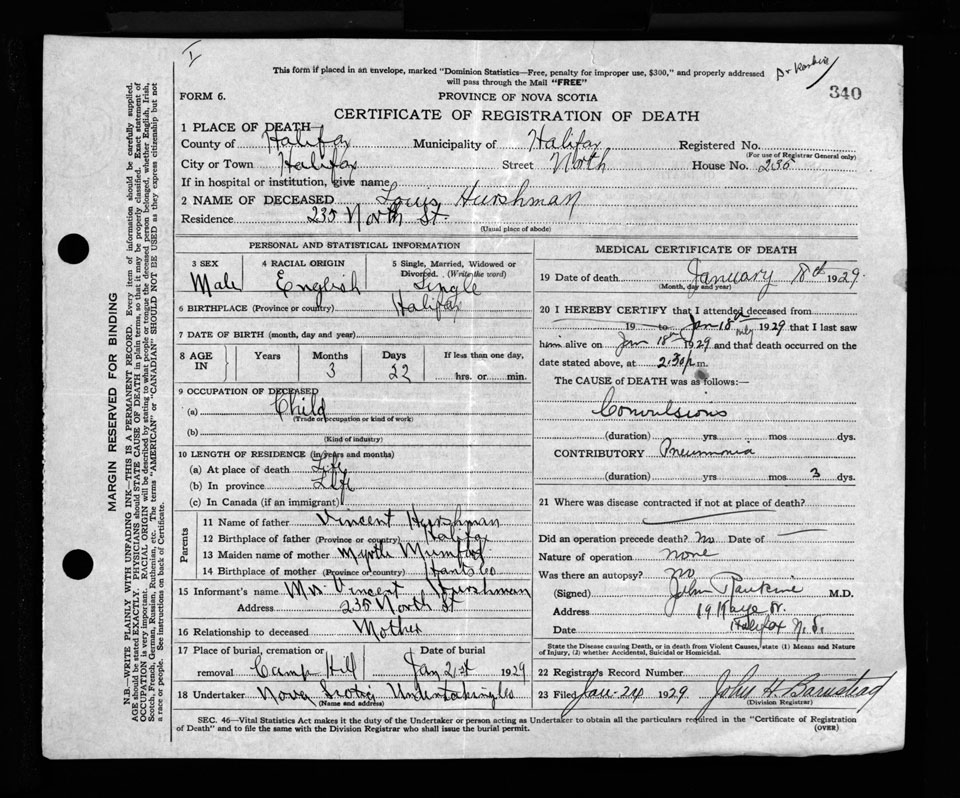 I
This form if placed in an envelope, marked "Dominion Statistics—Free, penalty for improper use, $300," and properly addressed
will pass through the Mail "FREE"
Dr Rankine
340
FORM 6.
PROVINCE OF NOVA SCOTIA
CERTIFICATE OF REGISTRATION OF DEATH
1 PLACE OF DEATH—
County of Halifax Municipality of Halifax Registered No.
(For use of Registrar General only)
City or Town Halifax Street North House No. 235
If in hospital or institution, give name
2 NAME OF DECEASED Louis Hurshman
Residence 235 North St.
(Usual place of abode)
PERSONAL AND STATISTICAL INFORMATION
3 SEX
Male
4 RACIAL ORIGIN
English
5 Single, Married, Widowed or
Divorced. (Write the word)
Single
6 BIRTHPLACE (Province or country) Halifax
7 DATE OF BIRTH (month, day and year)
8 AGE IN
Years Months Days If less than one day,
3 22 hrs. or min.
9 OCCUPATION OF DECEASED
(a) Child
(Trade occupation or kind of work)
(b)
(Kind of industry)
10 LENGTH OF RESIDENCE (in years and months)
(a) At place of death Life
(b) In province Life
(c) In Canada (if an immigrant)
Parents
11 Name of father Vincent Hurshman
12 Birthplace of father (Province or country) Halifax
13 Maiden name of mother Myrtle Mumford
14 Birthplace of mother (Province or country) Hants Co
15 Informant's name Mrs Vincent Hurshman
Address 235 North St
16 Relationship to deceased Mother
17 Place of burial, cremation or
removal Camp Hill
Date of burial
Jan 21st 1929
18 Undertaker Nova Scotia Undertaking Co
(Name and address)
MEDICAL CERTIFICATE OF DEATH
19 Date of death January 18th 1929.
(Month, day and year)
20 I HEREBY CERTIFY that I attended deceased from
19 to Jan 18th only 1929 that I last saw
him alive on Jan 18th 1929 and that death occurred on the
date stated above, at 2:30 p.m.
The CAUSE of DEATH was as follows:—
Convulsions
(duration) yrs mos dys.
CONTRIBUTORY Pneumonia
(duration) yrs mos 3 dys.
21 Where was disease contracted if not at place of death?
Did an operation precede death? No Date of —
Nature of operation none
Was there an autopsy? no
(Signed) John Rankine M.D.
Address 19 Kaye St.
Halifax N.S.
Date
State the Disease causing Death, or in death from Violent Causes, state (1) Means and Nature
of Injury, (2) whether Accidental, Suicidal or Homicidal.
22 Registrar's Record Number
23 Filed Jan 24 1929 John H. Barnstead
(Division Registrar)
SEC. 46—Vital Statistics Act makes it the duty of the Undertaker or person acting as Undertaker to obtain all the particulars required in the "Certificate of Registration
of Death" and to file the same with the Division Registrar who shall issue the burial permit.
(OVER)
MARGIN RESERVED FOR BINDING
N.B.—WRITE PLAINLY WITH UNFADING INK—THIS IS A PERMANENT RECORD. Every item of information should be carefully supplied.
AGE should be stated EXACTLY. PHYSICIANS should STATE CAUSE OF DEATH in plain terms, so that it may be properly classified. Exact statement of
OCCUPATION is very important. RACIAL ORIGIN will be described by stating to what people or tongue the deceased person belonged, whether English, Irish,
Scotch, French, German, Russian, Ruthenian, etc. The terms "AMERICAN" or "CANADIAN" SHOULD NOT BE USED as they express citizenship but not
a race or people. See instructions on back of Certificate.